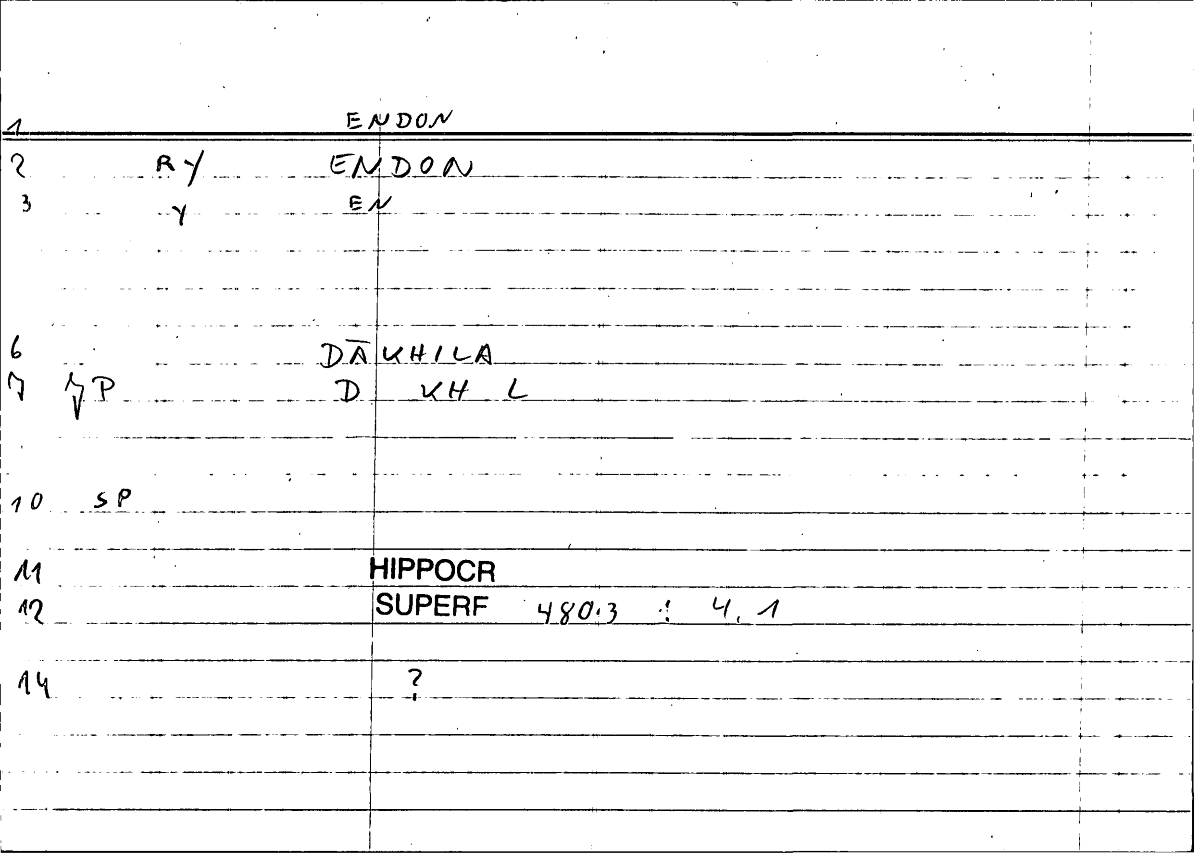 1 ENDON
2 RY ENDON
3 Y EN
6 DĀKHILA
7 P D KH L
10 SP
11 HIPPOCR
12 SUPERF 480.3 : 4.1
14 ?